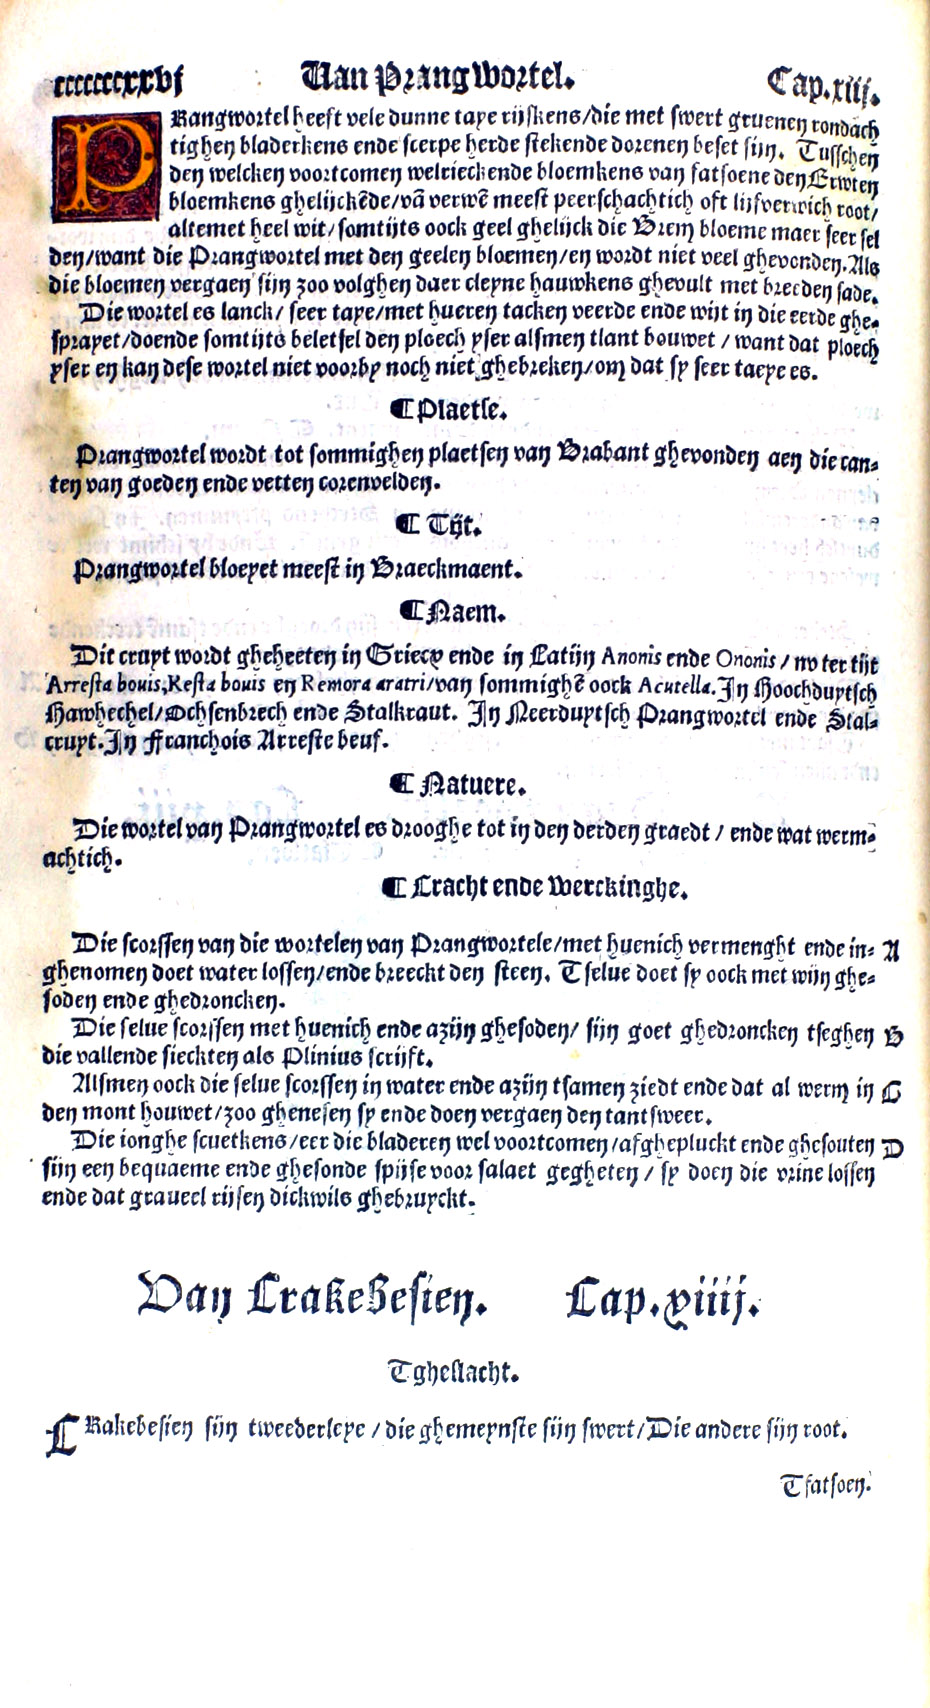 ccccccxxvj Van Prangwortel. Cap.xiij.
PRangwortel heeft vele dunne taye rijskens/die met swert gruenen rondach
tighen bladerkens ende scerpe herde stekende dorenen beset sijn. Tusschen
den welcken voortcomen welrieckende bloemkens van fatsoene den Erwten
bloemkens ghelijckēde/vā verwē meest peerschachtich oft lijfverwich root/
altemet heel wit/somtijts oock geel ghelijck die Brem bloeme maer seer sel
den/want die Prangwortel met den geelen bloemen/en wordt niet veel ghevonden. Als
die bloemen vergaen sijn zoo volghen daer cleyne hauwkens ghevult met breeden sade.
Die wortel es lanck/ seer taye/met hueren tacken veerde ende wijt in die eerde ghe-
sprayet/doende somtijts beletsel den ploech yser alsmen tlant bouwet / want dat ploech
yser en kan dese wortel niet voorby noch niet ghebreken/om dat sy seer taeye es.
¶ Plaetse.
Prangwortel wordt tot sommighen plaetsen van Brabant ghevonden aen die can-
ten van goeden ende vetten corenvelden.
¶ Tijt.
Prangwortel bloeyet meest in Braeckmaent.
¶ Naem.
Dit cruyt wordt gheheeten in Griecx ende in Latijn Anonis ende Ononis / nv ter tijt
Arresta bouis, Resta bouis en Remora aratri/van sommighē oock Acutella. In Hoochduytsch
Hawhechel/Ochsenbrech ende Stalkraut. In Neerduytsch Prangwortel ende Stal-
cruyt. In Franchois Arreste beuf.
¶ Natuere.
Die wortel van Prangwortel es drooghe tot in den derden graedt / ende wat werm-
achtich.
¶ Cracht ende Werckinghe.
Die scorssen van die wortelen van Prangwortele/met huenich vermenght ende in- A
ghenomen doet water lossen/ende breeckt den steen. Tselue doet sy oock met wijn ghe-
soden ende ghedroncken.
Die selue scorssen met huenich ende azijn ghesoden/ sijn goet ghedroncken tseghen B
die vallende sieckten als Plinius scrijft.
Alsmen oock die selue scorssen in water ende azijn tsamen ziedt ende dat al werm in C
den mont houwet/zoo ghenesen sy ende doen vergaen den tantsweer.
Die ionghe scuetkens/eer die bladeren wel voortcomen/afghepluckt ende ghesouten D
sijn een bequaeme ende ghesonde spijse voor salaet gegheten / sy doen die vrine lossen
ende dat graueel rijsen dickwils ghebruyckt.
Van Crakebesien. Cap.xiiij.
Tgheslacht.
CRakebesien sijn tweederleye / die ghemeynste sijn swert/Die andere sijn root.
Tfatsoen.